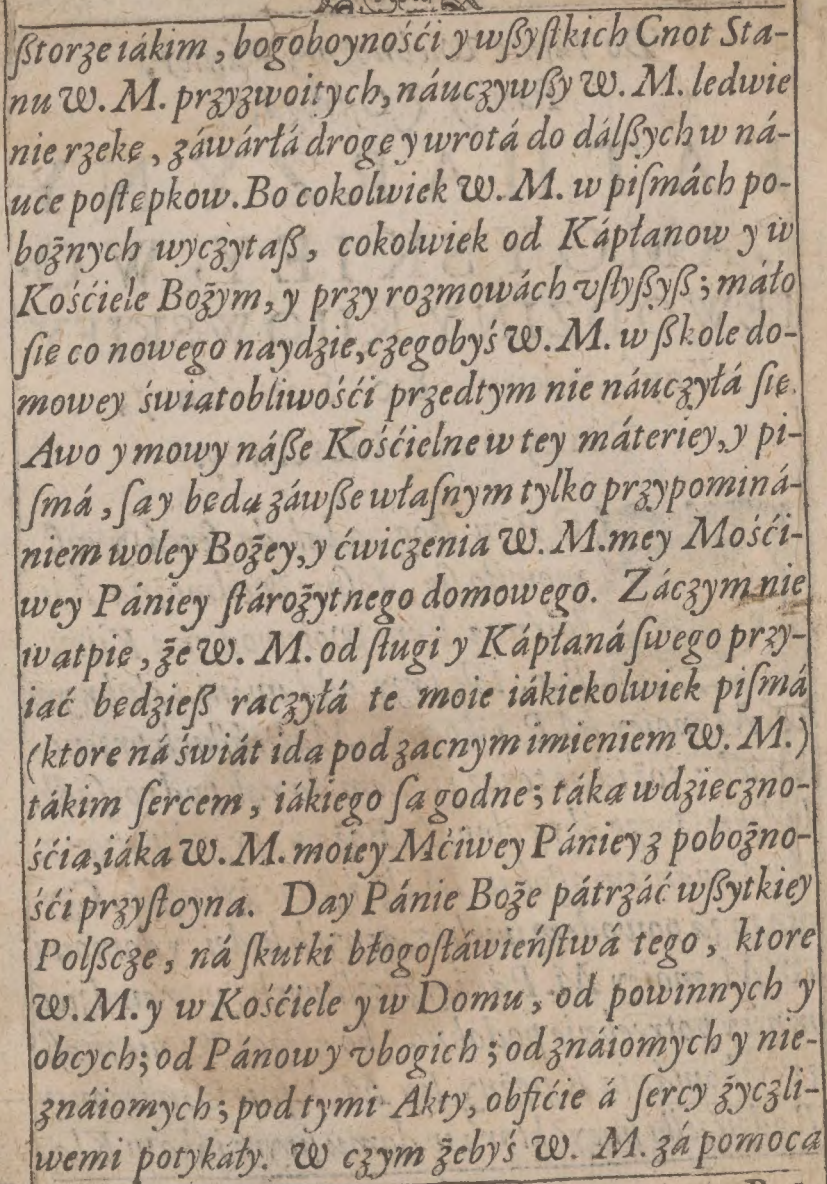 ßtorze iákim, bogoboynośći y wßyſtkich Cnot Sta-
nu W. M. przyzwoitych, náuczywßy W. M. ledwie
nie rzekę, záwárłá drogę y wrotá do dálßych w ná-
uce poſtępkow. Bo cokolwiek W. M. w piſmách po-
bożnych wyczytaß, cokolwiek od Kápłanow y w
Kośćiele Bożym, y przy rozmowách vſłyßyß; máło
ſię co nowego naydzie, czegobyś W. M. w ßkole do-
mowey świątobliwośći przedtym nie náuczyłá ſię.
Awo y mowy náße Kośćielne w tey máteriey, y pi-
ſmá, ſąy będą záwße właſnym tylko przypominá-
niem woley Bożey, y ćwiczenia W. M. mey Mośći-
wey Pániey ſtárożytnego domowego. Záczym nie
wątpię, że W. M. od ſługi y Kápłaná ſwego przy-
iąć będzieß raczyłá te moie iákiekolwiek piſmá
(ktore ná świát idą pod zacnym imieniem W. M.)
tákim ſercem, iákiego ſą godne; táką wdzięczno-
śćią, iáka W. M. moiey Mćiwey Pániey z pobożno-
śći przyſtoyna. Day Pánie Boże pátrzáć wßytkiey
Polßcze, ná ſkutki błogoſłáwieńſtwá tego, ktore
W. M. y w Kośćiele y w Domu, od powinnych y
obcych; od Pánow y vbogich; od znáiomych y nie-
znáiomych; pod tymi Akty, obfićie á ſercy życzli-
wemi potykáły. W czym żebyś W. M. zá pomocą